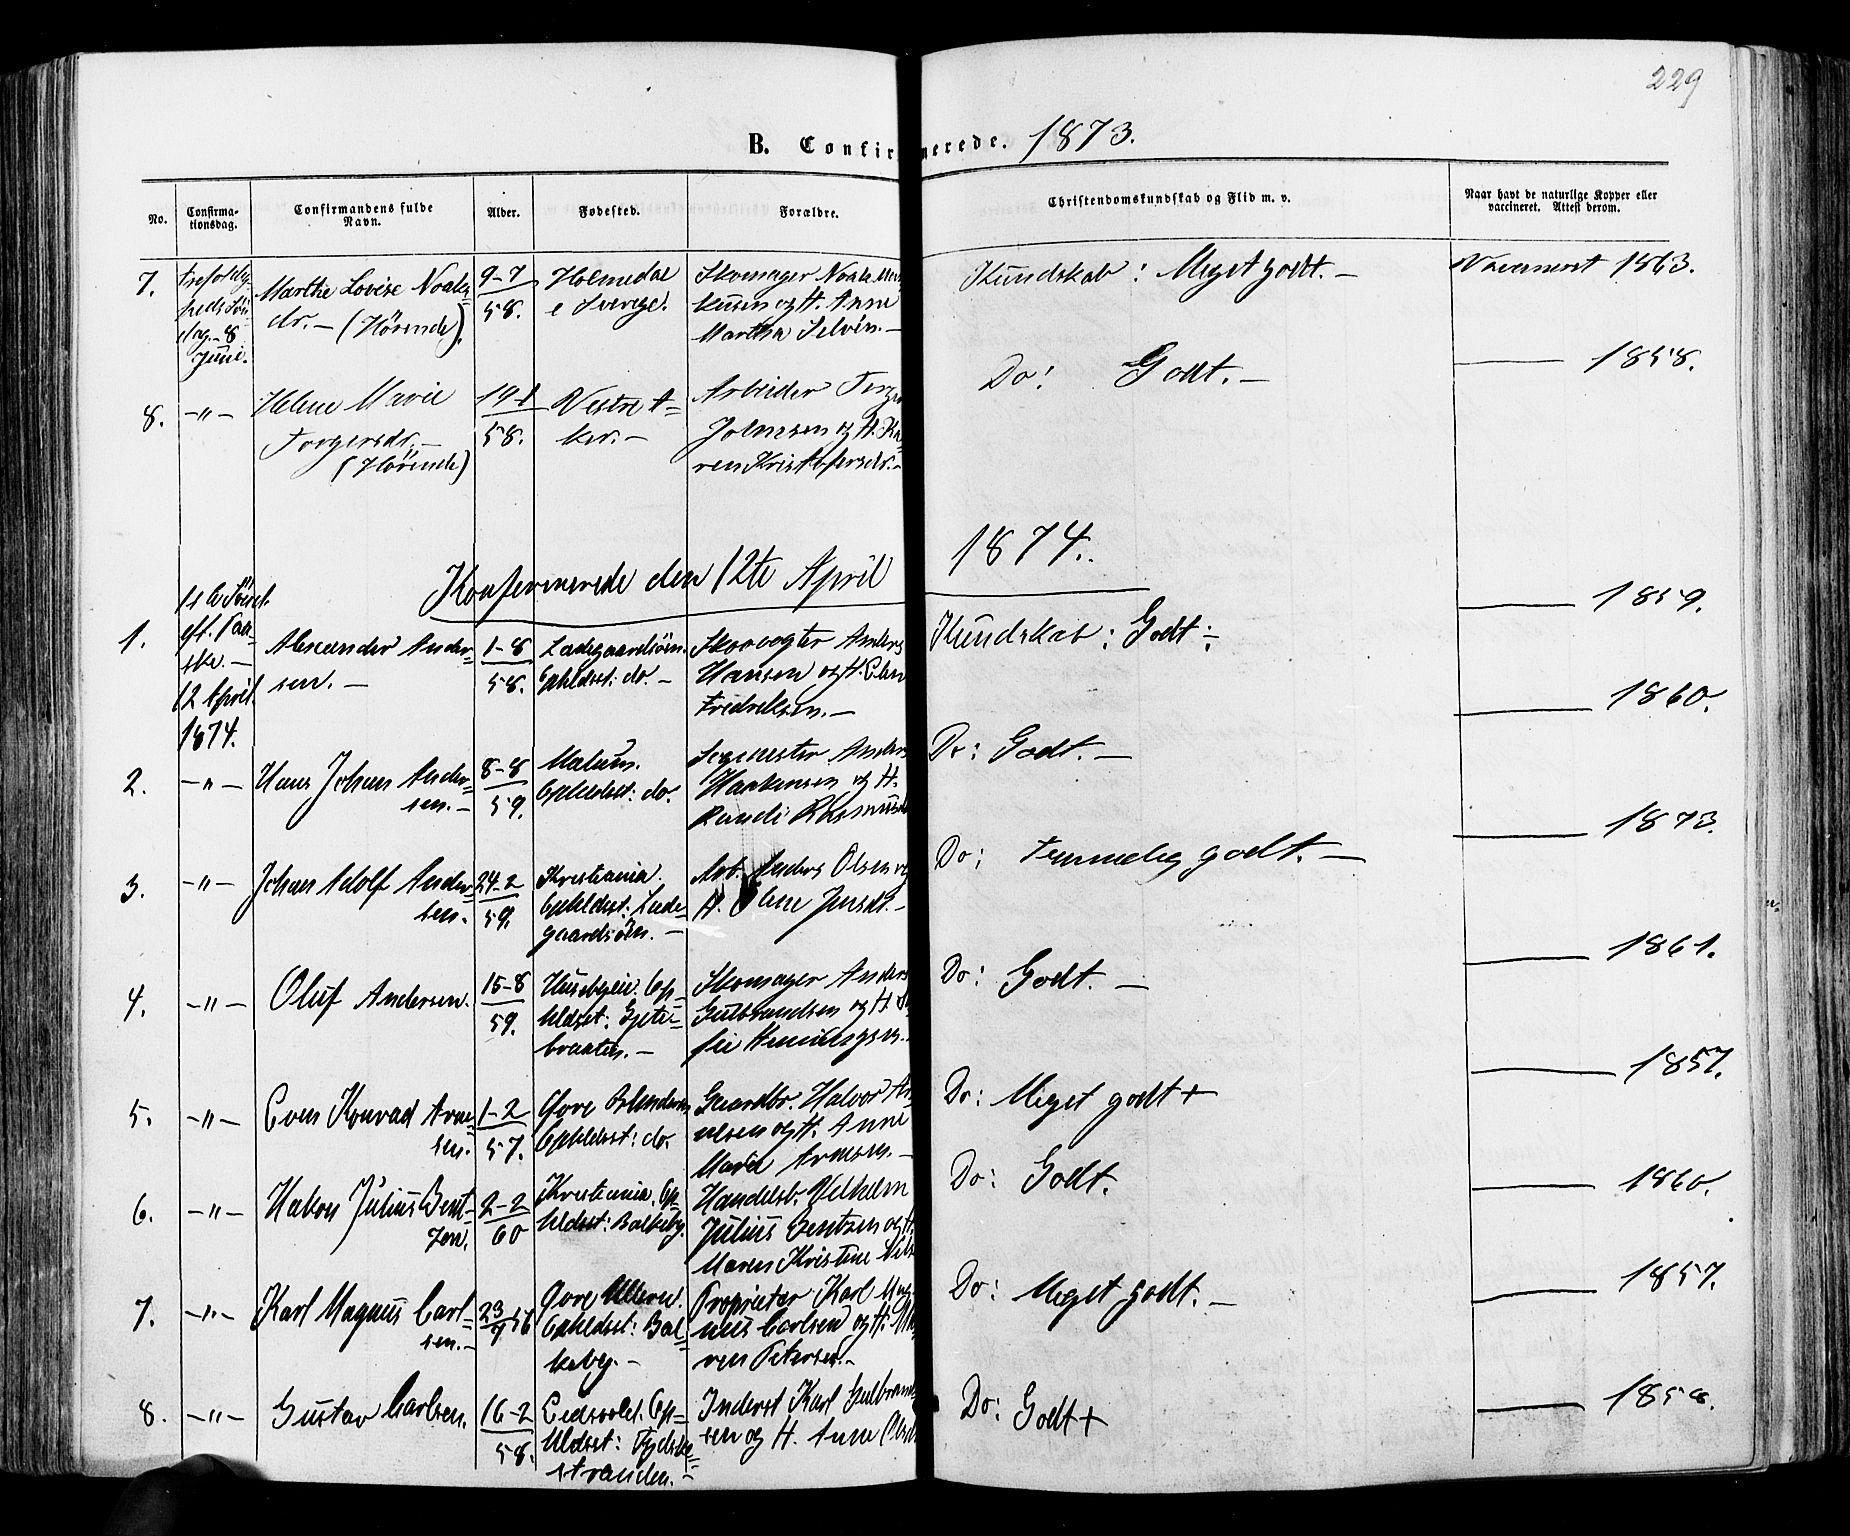 229
B. Confir merede. 1873.
No.
Confirma-
tionsdag.
Confirmandens fulde
Navn.
Alder.
Fødested.
Forældre.
Christendomskundskab og Flid m. v.
Naar havt de naturlige Kopper eller
vaccineret. Attest derom.
7.
Trefoldig-
heds Sön-
dag. 8
Juni.
Marthe Lovise Noaks-
dr. — (Hörende).
9-7
58.
Holmedal
i Sverige.
Skomager Noak Mar
kusen og H. Anne
Martha Selvén. —
Kundskab: Meget godt. —
Vaccineret 1863.
8.
—"—
Helene Marie
Torgersdr. —
(Hörende)
19-1
58.
Vestre A-
ker. —
Arbeider Torger
Johnsen og H. Ka-
ren Kristofersdr. —
Do: Godt. —
—— 1858.
Konfirmerede den 12te April 1874.
1.
1ste Sönd.
eft. Paa-
ske. —
12 April.
1874.
Alexander Ander-
sen. —
1-8
58.
Ladegaardsöen.
Opholdsst: do. —
Skovvogter Anders
Hansen og H. Elen
Fredriksen. —
Kundskab: Godt÷
—— 1859.
2.
—"—
Hans Johan Ander-
sen. —
8-8
59.
Malum.
Opholdsst: do.
Segmester Anders
Haakensen og H.
Randi Rasmus
Do: Godt. —
—— 1860.
3.
—"—
Johan Adolf Ander-
sen.
24-2
59.
Kristiania.
Opholdsst: Lade-
gaardsöen. —
Arb. Anders Olsen og
H. Olene Jensdr. —
Do: Temmelig godt. —
—— 1873.
4.
—"—
Oluf Andersen.
15-8
59.
Husebyeie. Op-
holdsst: Gjete-
braaten. —
Skomager Anders
Gulbrandsen og H.
fie Henningsen. —
Do: Godt. —
—— 1861.
5.
—"—
Even Konrad Arne-
sen.
1-2
57.
Övre Blindern
Opholdsst: do.
Gaardbr. Halvor Ar
nesen og H. Anne
Marie Arnesen. —
Do: Meget godt+
—— 1857.
6.
—"—
Hakon Julius Bent-
zen.
2-2
60
Kristiania. Op-
holdsst: Balkeby.
Handelsb. Vilhelm
Julius Bentzen og H.
Maren Kristine Nils
Do: Godt.
—— 1860.
7.
—"—
Karl Magnus Carl-
sen. —
23
9 56
Övre Ullern.
Opholdsst: Bal-
keby. —
Proprietær Karl Mag-
nus Carlsen og H. Ma
ren Petersen. —
Do: Meget godt. —
—— 1857.
8.
—"—
Gustav Carlsen.
16-2
58.
Eidsvold. Op-
holdsst: Tyske-
stranden. —
Inderst Karl Gulbrand-
sen og H. Anne Olsdr
Do: Godt+
—— 1858.